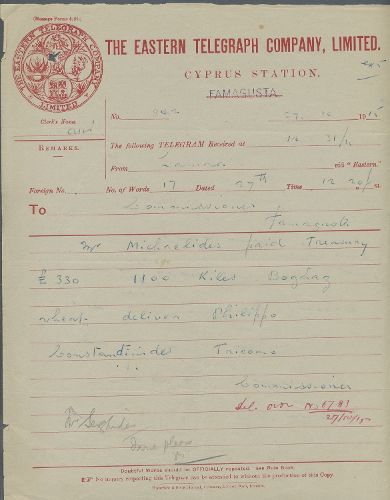 (Message Forms
THE EASTERN TELEGRAPH COMPANY, LIMITED.
THE EASTERN TELEGRAPH COMPANY LIMITED
CYPRUS STATION.
FAMAGUSTA
Clerk's Name
No. 942 27. 10 1915
REMARKS.
The following TELEGRAM Received at 12 31/
From Larnaca via "Eastern."
Foreign No. No. of Words 17 Dated 27th Time 12 20/
To Commissioner
Famagusta
Mr Michaelides paid Treasury
£ 330 1100 Kiles Bogdag
wheat deliver Philippo
Constantinides Tricomo
Commissioner
Tel. over
27/10/15
Mr
Done please
Doubtful Words should be OFFICIALLY repeated. See Rule Book.
No inquiry respecting this Telegram can be attended to without the production of this Copy.